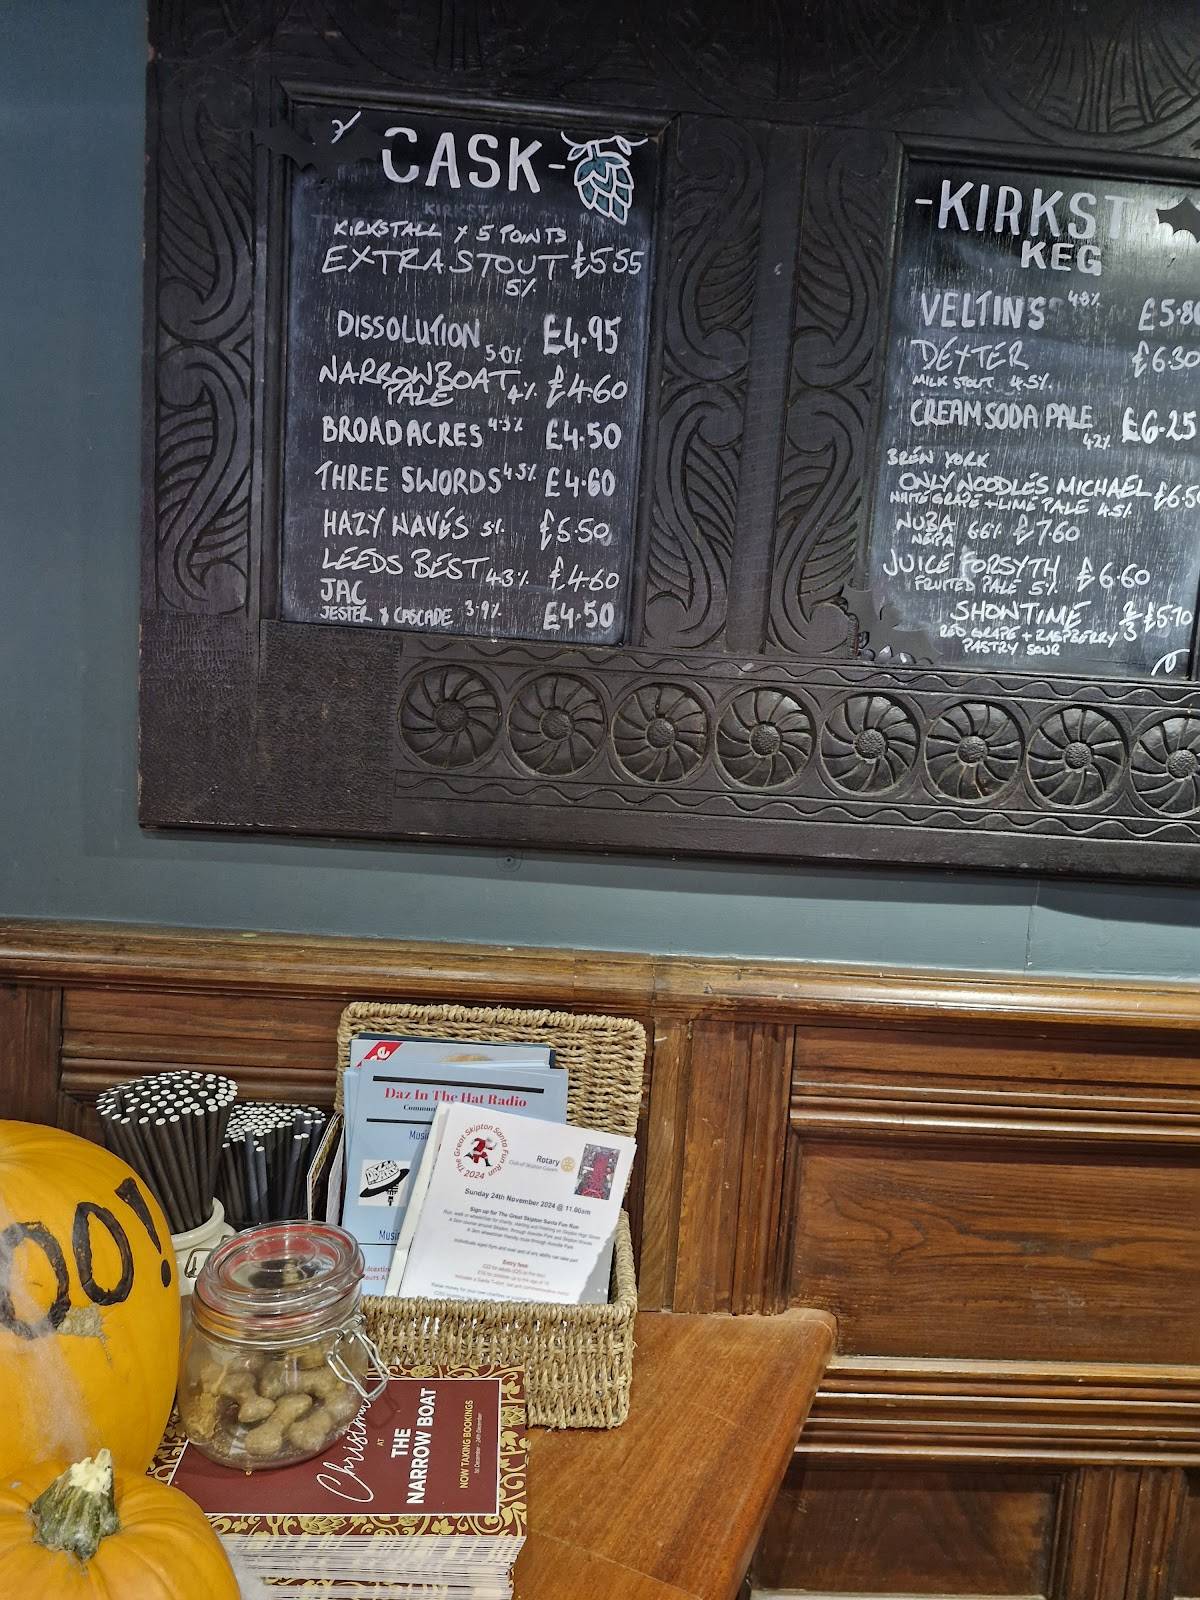 CASK-
KIRKSTALL X 5 POINTS
EXTRA STOUT £5.55
5%
DISSOLUTION 5.0% £4.95
NARROWBOAT
PALE 4% £4.60
BROADACRES 4.3% £4.50
THREE SWORDS 4.5% £4.60
HAZY WAVES 5% £5.50
LEEDS BEST 4.3% £4.60
JAC
JESTER & CASCADE 3.9% £4.50
-KIRKST
KEG
VELTINS 4.8% £5.80
DEXTER £6.30
MILK STOUT 4.5%
CREAM SODA PALE £6.25
4.2%
BREW YORK
ONLY NOODLES MICHAEL £6.5
WHITE GRAPE + LIME PALE 4.5%
NUBA
NEPA 6.6% £7.60
JUICE FORSYTH £6.60
FRUITED PALE 5%
SHOWTIME 2/3 £5.70
RED GRAPE + RASPBERRY
PASTRY SOUR
Daz In The Hat Radio
The Great Skipton Santa Fun Run
2024
Rotary
Club of Skipton Craven
Sunday 24th November 2024 @ 11.00am
Sign up for The Great Skipton Santa Fun Run
Entry fees:
OO!
Christmas
AT
THE
NARROW BOAT
NOW TAKING BOOKINGS
1st December - 24th December